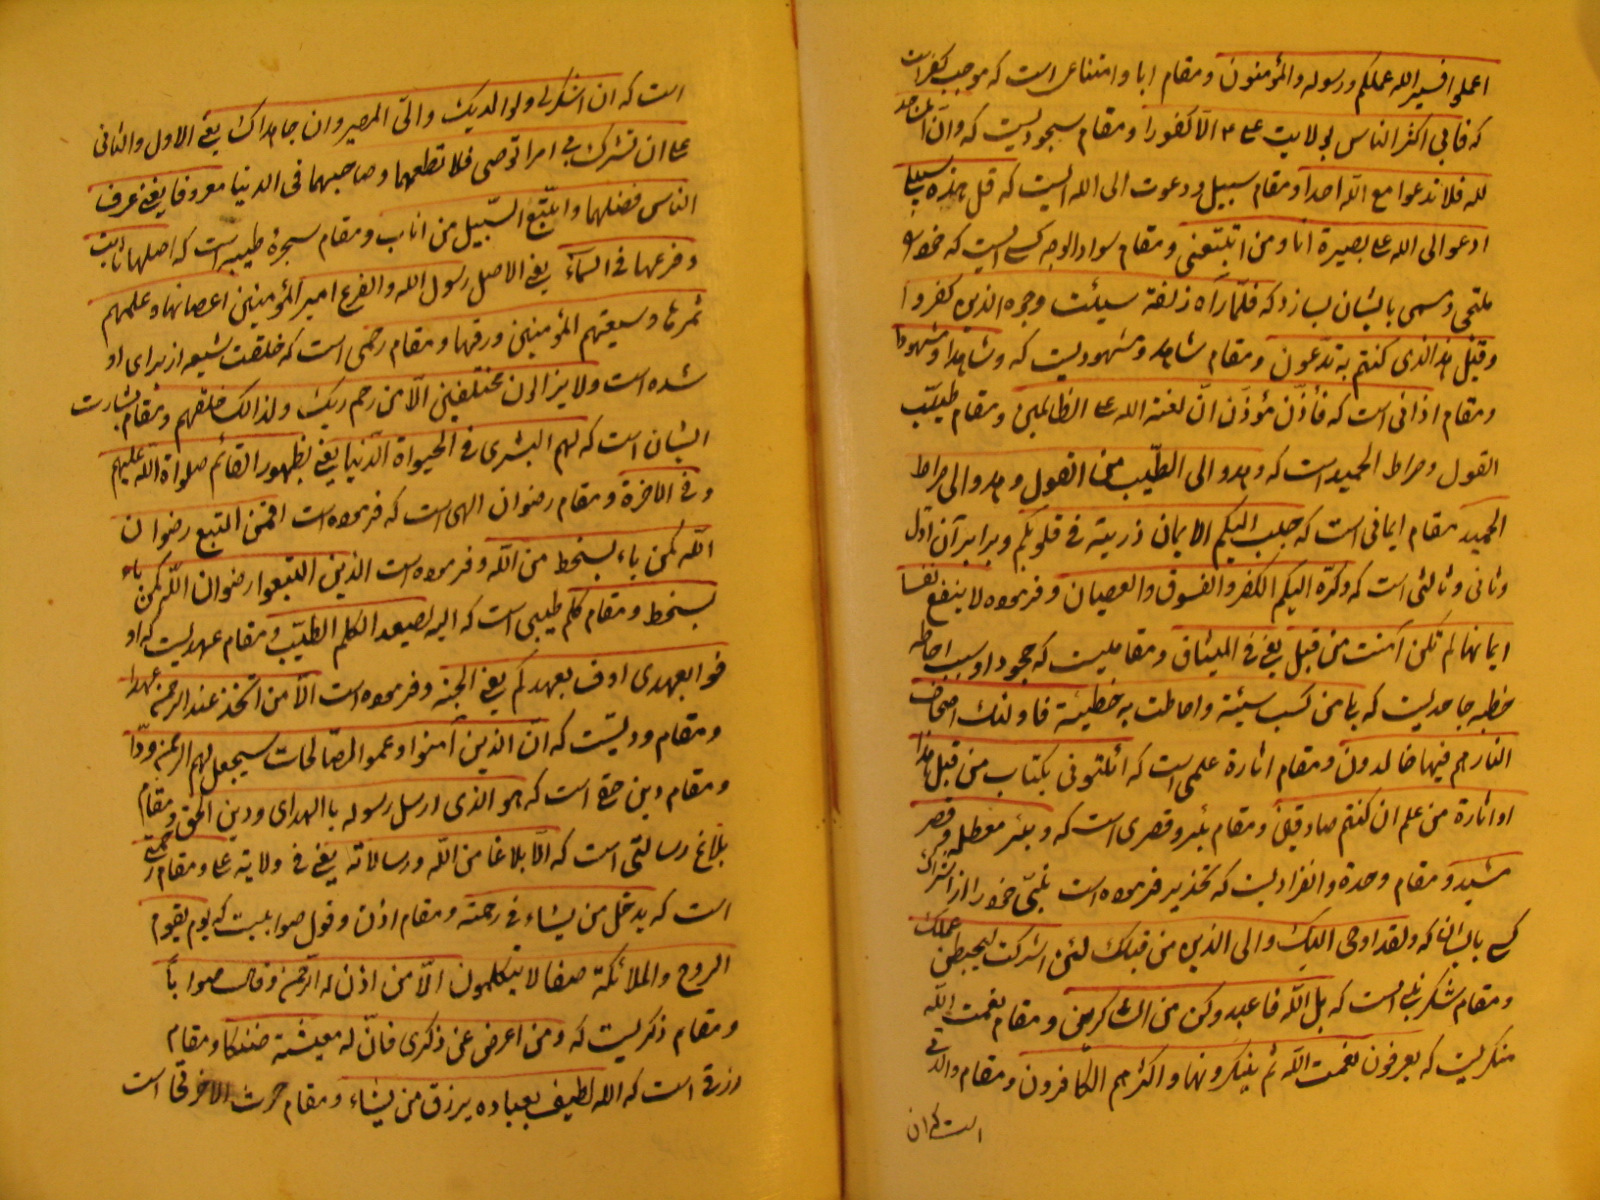 اعملوا فسیر الله عملکم ورسوله والمؤمنون ومقام ابا وامتناعی است که موجب کفر است
که فابی اکثر الناس بولایت علی ع الّا کفورا ومقام سجودیست که وانّ المساجد
لله فلا تدعوا مع الله احدا ومقام سبیل ودعوت الی الله الیست که قل هذه سبیلی
ادعوا الی الله علی بصیرة انا ومن اتبعنی ومقام سواد الوجه کسی الیست که خود را
ملتجی ومسمی بایشان بسازد که فلمّا رآه زلفة سیئت وجوه الذین کفروا
وقیل هذا الذی کنتم به تدعون ومقام شاهد ومشهودیست که وشاهدا ومشهودا
ومقام اذانی است که فأذّن مؤذّن انّ لعنة الله علی الظالمین ومقام طیّب
القول وصراط الحمید است که وهدوا الی الطّیب من القول وهدوا الی صراط
الحمید ومقام ایمانی است که حبب الیکم الایمان وزینه فی قلوبکم وبرابر آن اوّل
وثانی وثالثی است که وکرّه الیکم الکفر والفسوق والعصیان وفرموده لا ینفع نفسا
ایمانها لم تکن آمنت من قبل یعنی فی المیثاق ومقامیست که جحود او سبب احاطه
خطیه جاحدیست که بلی من کسب سیئة واحاطت به خطیئة فاولئک اصحاب
النار هم فیها خالدون ومقام اثارة علمی است که ائتونی بکتاب من قبل هذا
او اثارة من علم ان کنتم صادقین ومقام بئر وقصری است که وبئر معطله وقصر
مشید ومقام وحدة وانفرادیست که تحذیر فرموده است نبیّ خود را از اشراک
کسی بایشان که ولقد اوحی الیک والی الذین من قبلک لئن اشرکت لیحبطن عملک
ومقام شکر نبی است که بل الله فاعبد وکن من الشاکرین ومقام نعمت الله
منکریست که یعرفون نعمت الله ثم ینکرونها واکثرهم الکافرون ومقام والدی
است که ان
است که ان اشکر لی ولوالدیک والیّ المصیر وان جاهداک یعنی الاول والثانی
علی ان تشرک بی امرا توصی فلا تطعهما وصاحبهما فی الدنیا معروفا یعنی عرف
الناس فضلهما واتّبع السّبیل من اناب ومقام شجرهٔ طیبه است که اصلها ثابت
وفرعها فی السماء یعنی الاصل رسول الله والفرع امیر المؤمنین اغصانها وعلمهم
ثمرها وشیعتهم المؤمنین ورقها ومقام رحمی است که خلقت شیعه از برای او
شده است ولا یزالون مختلفین الّا من رحم ربک ولذالک خلقهم ومقام بشارت
ایشان است که لهم البشری فی الحیواة الدّنیا یعنی بظهور القائم صلواة الله علیهم
وفی الاخرة ومقام رضوان الهی است که فرموده است افمن اتبع رضوان
الله کمن باء بسخط من الله وفرموده است الذین اتبعوا رضوان الله کمن باء
بسخط ومقام کلم طیبی است که الیه یصعد الکلم الطیّب ومقام عهدیست که او
فوا بعهدی اوف بعهدکم یعنی الجنه وفرموده است الّا من اتخذ عند الرحمن عهدا
ومقام ودیست که انّ الذین آمنوا وعملوا الصّالحات سیجعل لهم الرحمن ودّا
ومقام دین حق است که هو الذی ارسل رسوله باالهدای ودین الحق ومقام
بلاغ رسالتی است که الّا بلاغا من الله ورسالاته یعنی فی ولایته علی ومقام رحمتی
است که یدخل من یشاء فی رحمته ومقام اذن وقول صوابیست که یوم یقوم
الروح والملائکة صفا لا یتکلمون الّا من اذن له الرّحمن وقال صوابا
ومقام ذکریست که ومن اعرض عن ذکری فانّ له معیشة ضنکا ومقام
رزقی است که الله لطیف بعباده یرزق من یشاء ومقام حرث الاخرتی است